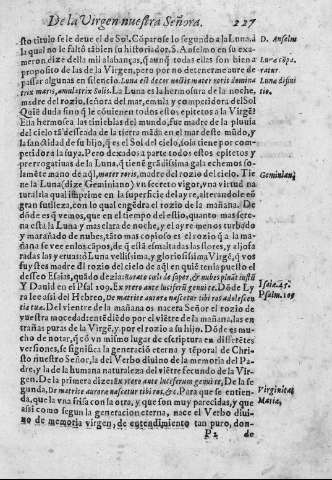 De la Virgen nuestra Señora. 227
sto titulo se le deue el de Sol. Cóparase lo segundo a la Luna, á D. Anselm
la qual no le faltó tábien su historiador. S. Anselmo en su exa-
meron dize della mil alabanças, q̃ aunq̃ todas ellas son bien a Luna cópa
proposito de las de la Virgen, pero por no detenerme aure de ratur
passar algunas en silencio. Luna est decor noctis mater roris domina Luna
trix maris, La Luna es la hermosura de la noche, tio.
madre del rozio, señora del mar, emula y competidora del Sol
Quié duda sino q̃ le conuienen todos estos epitetos a la Virgē
Ella hermosea las tinieblas del mundo, fue madre de la pluuia
del cielo tá desseada de la tierra mádá en el mar deste múdo, y
la sanctidad de su hijo, q̃ es el Sol del cielo, sola tiene por com-
petidora la suya. Pero dexados a parte todos estos epitetos y
prerrogatiuas de la Luna. q̃ tiené grádissima gala echemos so-
lamēte mano de aq̃l, mater roris, madre del rozio del cielo. Tie
ne la Luna (dize Geminiano) vn secreto vigor, vna virtud na Geminian,
tural la qual imprime en la superficie del ayre, alterandole có
gran sutileza, con lo qual engédra el rozio de la mañana. De
dóde es q̃ vemos, que en el tiempo del estio, quanto mas sere-
na está la Luna y mas clara de noche, y el ayre menos turbado
y marañado de nubes, táto mas copioso es el rozio q̃ a la ma-
ñana se vee en los cápos, de q̃ está esmaltadas las flores, y aljofa
radas las yeruas: ó Luna vellissima, y gloriosissima Virgē, q̃ vos
fuystes madre dl rozio del cielo de aq̃l en quié tenia puesto el
desseo Esaias, quádo dezia: Rorate cæli de super, & nubes pluāt iustū Isaie. 45.
Y Dauid en el Psal 109. Ex vtero ante luciferū genui te. Dóde Ly Psalm. 109
ra lee assi del Hebreo, De matrice aurora nascetur tibi ros adolescen
tiæ tuæ. Del vientre de la mañana os nacera Señor el rozio de
vuestra mocedad: entédiédo por el viētre de la mañana, las en
trañas puras de la Virgē, y por el rozio a su hijo. Dóde es mu-
cho de notar, q̃ có vn mismo lugar de escriptura en differétes
versiones, se significa la generació eterna y téporal de Christo
nuestro Señor, la del Verbo diuino de la memoria del Pa-
dre, y la de la humana naturaleza del viētre fecundo de la Vir-
gen. De la primera dize: Ex vtero ante luciferum genui te, De la se
gunda, De matrice aurora nascetur tibi ros, &c. Para que se entien- Virginitas
da, que la vna frisa con la otra, y que son muy parecidas, y que Maria,
assi como segun la generacion eterna, nace el Verbo diui-
no de memoria virgen, de entendimiento tan puro, don-
P2 de